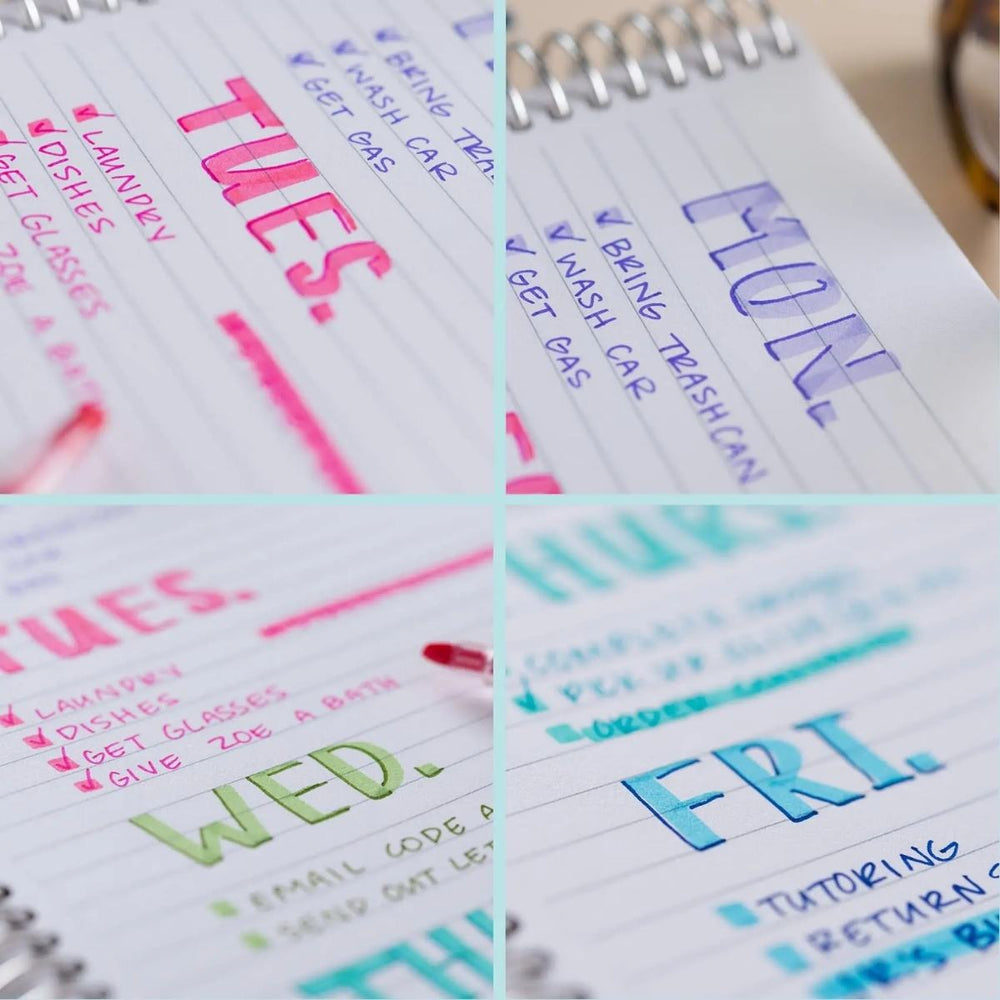 BRING TRA
WASH CAR
GET GAS
TUES.
LAUNDRY
DISHES
GET GLASSES
ZOE A BATH
MON.
BRING TRASHCAN
WASH CAR
GET GAS
TUES.
LAUNDRY
DISHES
GET GLASSES
GIVE ZOE A BATH
WED.
EMAIL CODE A
SEND OUT LET
TH
HURS
COMPLETE
PICK UP
ORDER
FRI.
TUTORING
RETURN